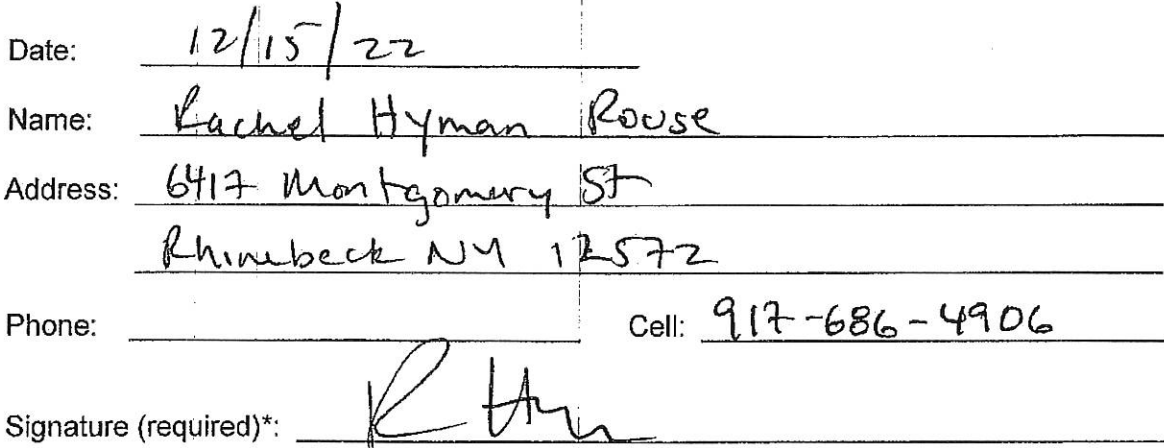 Date: 12/15/22
Name: Rachel Hyman Rouse
Address: 6417 Montgomery St
Rhinebeck NY 12572
Phone: Cell: 917-686-4906
Signature (required)*: R Hyn